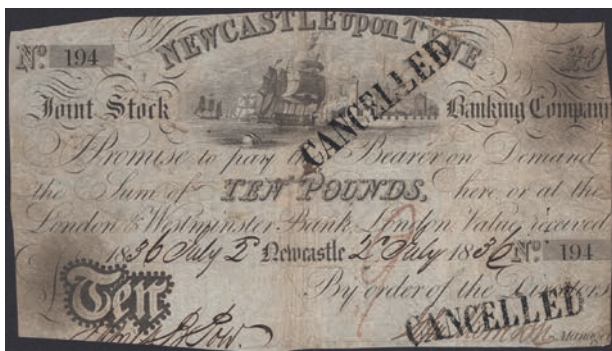 NEWCASTLE upon TYNE
No. 194
Joint Stock Banking Company
CANCELLED
I Promise to pay the Bearer on Demand
the Sum of TEN POUNDS, here or at the
London & Westminster Bank London Value received
1836 July 2 Newcastle 2 July 1836 No. 194
By order of the Directors
Ten
CANCELLED
Manager